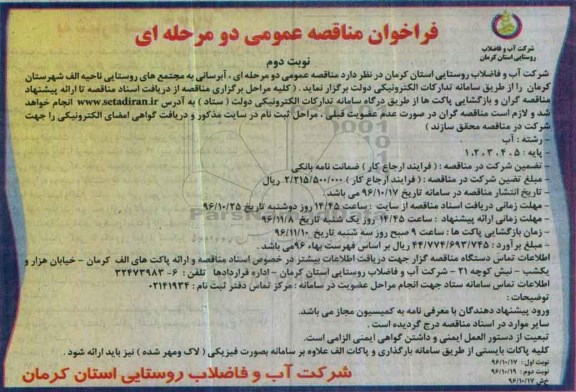 فراخوان مناقصه عمومی دو مرحله ای
نوبت دوم
شرکت آب و فاضلاب
روستایی استان کرمان
شرکت آب و فاضلاب روستایی استان کرمان در نظر دارد مناقصه عمومی دو مرحله ای ، آبرسانی به مجتمع های روستایی ناحیه الف شهرستان
کرمان را از طریق سامانه تدارکات الکترونیکی دولت برگزار نماید . ( کلیه مراحل برگزاری مناقصه از دریافت اسناد مناقصه تا ارائه پیشنهاد
مناقصه گران و بازگشایی پاکت ها از طریق درگاه سامانه تدارکات الکترونیکی دولت ( ستاد ) به آدرس www.setadiran.ir انجام خواهد
شد و لازم است مناقصه گران در صورت عدم عضویت قبلی ، مراحل ثبت نام در سایت مذکور و دریافت گواهی امضای الکترونیکی را جهت
شرکت در مناقصه محقق سازند )
رشته : آب
- پایه : ۵ ، ۴ ، ۳ ، ۲ ، ۱
- تضمین شرکت در مناقصه : ( فرایند ارجاع کار ) ضمانت نامه بانکی
- مبلغ تضین شرکت در مناقصه : ( فرایند ارجاع کار ) ۲/۲۱۵/۵۰۰/۰۰۰ ریال
- تاریخ انتشار مناقصه در سامانه تاریخ ۹۶/۱۰/۱۷ می باشد .
- مهلت زمانی دریافت اسناد مناقصه از سایت : ساعت ۱۴/۴۵ روز دوشنبه تاریخ ۹۶/۱۰/۲۵
- مهلت زمانی ارائه پیشنهاد : ساعت ۱۴/۴۵ روز یک شنبه تاریخ ۹۶/۱۱/۸
- زمان بازگشایی پاکت ها : ساعت ۹ صبح روز سه شنبه تاریخ ۹۶/۱۱/۱۰
- مبلغ برآورد : ۴۴/۷۷۴/۶۹۳/۷۴۵ ریال بر اساس فهرست بهاء ۹۶ می باشد .
اطلاعات تماس دستگاه مناقصه گزار جهت دریافت اطلاعات بیشتر در خصوص اسناد مناقصه و ارائه پاکت های الف کرمان - خیابان هزار و
یکشب - نبش کوچه ۲۱ - شرکت آب و فاضلاب روستایی استان کرمان - اداره قراردادها تلفن : ۶- ۳۲۴۷۳۹۸۳
اطلاعات تماس سامانه ستاد جهت انجام مراحل عضویت در سامانه : مرکز تماس دفتر ثبت نام : ۰۲۱۴۱۹۳۴
توضیحات :
ورود پیشنهاد دهندگان با معرفی نامه به کمیسیون مجاز می باشد.
سایر موارد در اسناد مناقصه درج گردیده است .
تبعیت از دستور العمل ایمنی و داشتن گواهی ایمنی الزامی است.
کلیه پاکات بایستی از طریق سامانه بارگذاری و پاکات الف علاوه بر سامانه بصورت فیزیکی ( لاک ومهر شده ) نیز باید ارائه شود .
نوبت اول : ۹۶/۱۰/۱۷
نوبت دوم : ۹۶/۱۰/۱۹
خ‌ش ۹۶/۱۰/۱۷
شرکت آب و فاضلاب روستایی استان کرمان